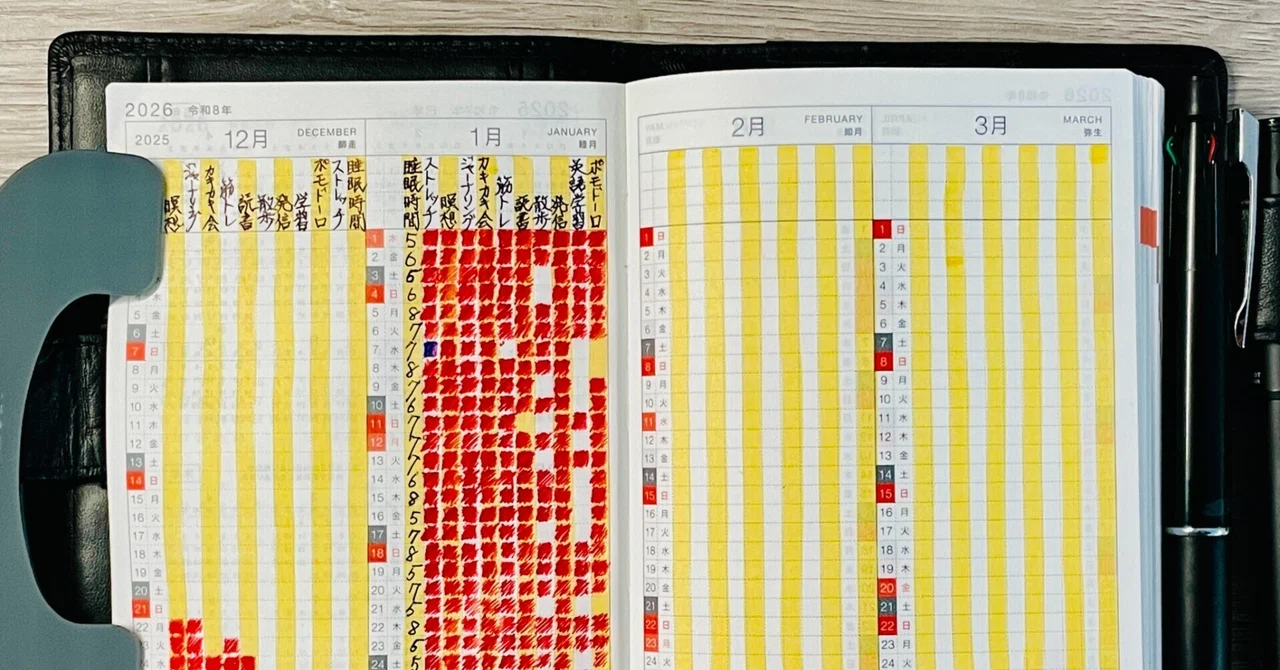 2026 令和8年
2025 12月 DECEMBER 師走
1月 JANUARY 睦月
2月 FEBRUARY 如月
3月 MARCH 弥生
瞑想
ジャーナリング
カキカキ会
筋トレ
読書
散歩
発信
学習
ポモドーロ
ストレッチ
睡眠時間
睡眠時間
ストレッチ
瞑想
ジャーナリング
カキカキ会
筋トレ
読書
散歩
発信
英語学習
ポモドーロ
木
5 金
6 土
7 日
8 月
9 火
10 水
11 木
12 金
13 土
14 日
15 月
16 火
17 水
18 木
19 金
20 土
21 日
22 月
23 火
24 水
1 木 5
2 金 6
3 土 6
4 日 6
5 月 8
6 火 7
7 水 7
8 木 8
9 金 7
10 土 6
11 日 7
12 月 7
13 火 7
14 水 6
15 木 8
16 金 5
17 土 7
18 日 8
19 月 5
20 火 7
21 水 5
22 木 8
23 金 6
24 土 5
1 日
2 月
3 火
4 水
5 木
6 金
7 土
8 日
9 月
10 火
11 水
12 木
13 金
14 土
15 日
16 月
17 火
18 水
19 木
20 金
21 土
22 日
23 月
24 火
1 日
2 月
3 火
4 水
5 木
6 金
7 土
8 日
9 月
10 火
11 水
12 木
13 金
14 土
15 日
16 月
17 火
18 水
19 木
20 金
21 土
22 日
23 月
24 火